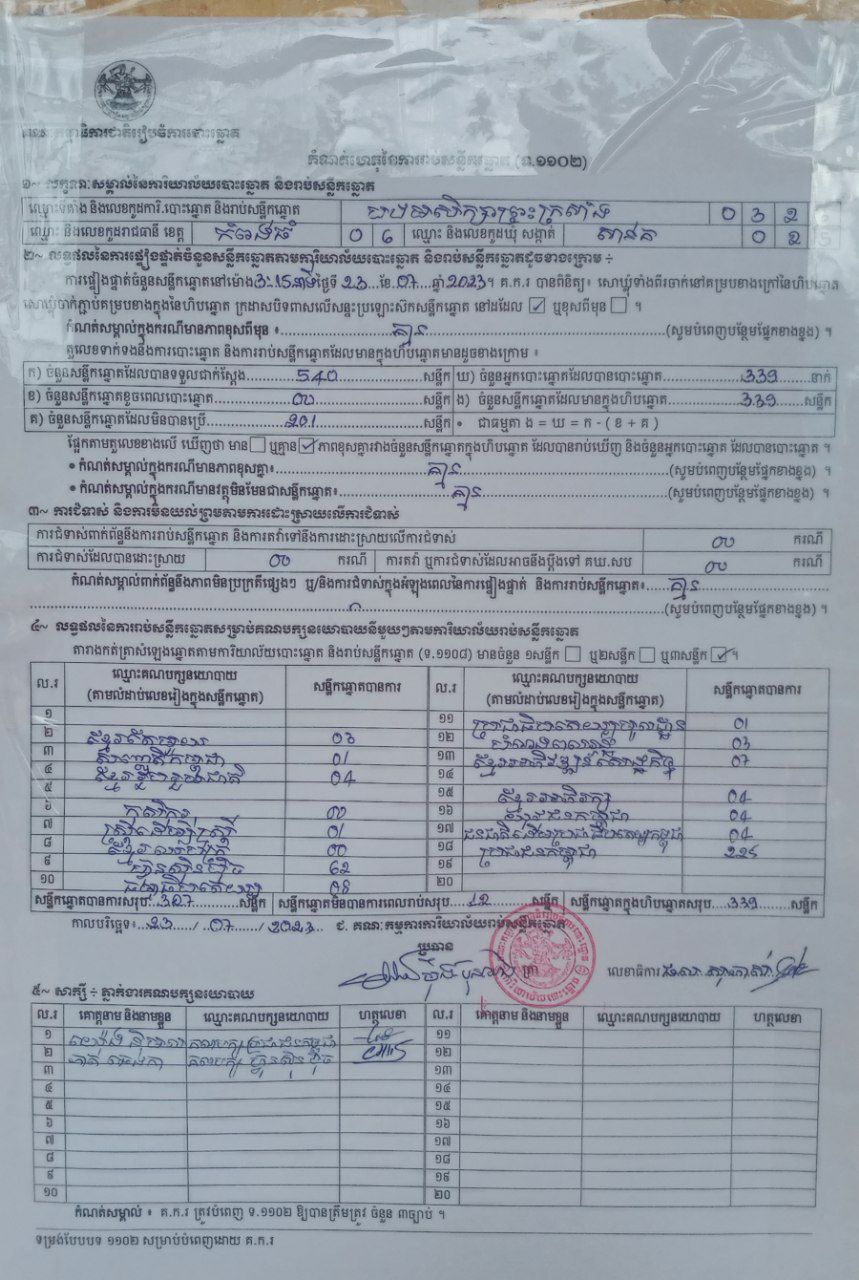 គណៈកម្មាធិការជាតិរៀបចំការបោះឆ្នោត
កំណត់ហេតុនៃការរាប់សន្លឹកឆ្នោត (ទ.១១០២)
១~ លក្ខណៈសម្គាល់នៃការិយាល័យបោះឆ្នោត និងរាប់សន្លឹកឆ្នោត
ឈ្មោះទីតាំង និងលេខកូដការិ.បោះឆ្នោត និងរាប់សន្លឹកឆ្នោត 0 3 2
ឈ្មោះ និងលេខកូដរាជធានី ខេត្ត កំពង់ធំ 0 6 ឈ្មោះ និងលេខកូដឃុំ សង្កាត់ 0 2
២~ លទ្ធផលនៃការផ្ទៀងផ្ទាត់ចំនួនសន្លឹកឆ្នោតតាមការិយាល័យបោះឆ្នោត និងរាប់សន្លឹកឆ្នោតដូចខាងក្រោម ÷
ការផ្ទៀងផ្ទាត់ចំនួនសន្លឹកឆ្នោតនៅម៉ោង 3:15នាទី ថ្ងៃទី 23 ខែ 07 ឆ្នាំ 2023។ គ.ក.រ បានពិនិត្យ៖ សោឃ្លុំទាំងពីរចាក់នៅគម្របខាងក្រៅនៃហិបឆ្នោត
សោឃ្លុំចាក់ភ្ជាប់គម្របខាងក្នុងនៃហិបឆ្នោត ក្រដាសបិទពាសលើសន្ទះប្រឡោះស៊កសន្លឹកឆ្នោត នៅដដែល ☑ ឬខុសពីមុន ☐ ។
កំណត់សម្គាល់ក្នុងករណីមានភាពខុសពីមុន ៖ គ្មាន (សូមបំពេញបន្ថែមផ្នែកខាងខ្នង) ។
តួលេខទាក់ទងនឹងការបោះឆ្នោត និងការរាប់សន្លឹកឆ្នោតដែលមានក្នុងហិបឆ្នោតមានដូចខាងក្រោម ៖
ក) ចំនួនសន្លឹកឆ្នោតដែលបានទទួលជាក់ស្តែង 540 សន្លឹក ឃ) ចំនួនអ្នកបោះឆ្នោតដែលបានបោះឆ្នោត 339 នាក់
ខ) ចំនួនសន្លឹកឆ្នោតខូចពេលបោះឆ្នោត 00 សន្លឹក ង) ចំនួនសន្លឹកឆ្នោតដែលមានក្នុងហិបឆ្នោត 339 សន្លឹក
គ) ចំនួនសន្លឹកឆ្នោតដែលមិនបានប្រើ 201 សន្លឹក • ជាធម្មតា ង = ឃ = ក - ( ខ + គ )
ផ្អែកតាមតួលេខខាងលើ ឃើញថា មាន ☐ ឬគ្មាន ☑ ភាពខុសគ្នារវាងចំនួនសន្លឹកឆ្នោតក្នុងហិបឆ្នោត ដែលបានរាប់ឃើញ និងចំនួនអ្នកបោះឆ្នោត ដែលបានបោះឆ្នោត ។
• កំណត់សម្គាល់ក្នុងករណីមានភាពខុសគ្នា៖ គ្មាន (សូមបំពេញបន្ថែមផ្នែកខាងខ្នង) ។
• កំណត់សម្គាល់ក្នុងករណីមានវត្ថុមិនមែនជាសន្លឹកឆ្នោត៖ គ្មាន (សូមបំពេញបន្ថែមផ្នែកខាងខ្នង) ។
៣~ ការជំទាស់ និងការមិនយល់ព្រមតាមការដោះស្រាយលើការជំទាស់
ការជំទាស់ពាក់ព័ន្ធនឹងការរាប់សន្លឹកឆ្នោត និងការតវ៉ាទៅនឹងការដោះស្រាយលើការជំទាស់ 00 ករណី
ការជំទាស់ដែលបានដោះស្រាយ 00 ករណី ការតវ៉ា ឬការជំទាស់ដែលអាចនឹងប្តឹងទៅ គឃ.សប 00 ករណី
កំណត់សម្គាល់ពាក់ព័ន្ធនឹងភាពមិនប្រក្រតីផ្សេងៗ ឬ/និងការជំទាស់ក្នុងអំឡុងពេលនៃការផ្ទៀងផ្ទាត់ និងការរាប់សន្លឹកឆ្នោត៖ គ្មាន
(សូមបំពេញបន្ថែមផ្នែកខាងខ្នង) ។
៤~ លទ្ធផលនៃការរាប់សន្លឹកឆ្នោតសម្រាប់គណបក្សនយោបាយនីមួយៗតាមការិយាល័យរាប់សន្លឹកឆ្នោត
តារាងកត់ត្រាសំឡេងឆ្នោតតាមការិយាល័យបោះឆ្នោត និងរាប់សន្លឹកឆ្នោត (ទ.១១០៨) មានចំនួន ១សន្លឹក ☐ ឬ២សន្លឹក ☐ ឬ៣សន្លឹក ☑ ។
ល.រ ឈ្មោះគណបក្សនយោបាយ (តាមលំដាប់លេខរៀងក្នុងសន្លឹកឆ្នោត) សន្លឹកឆ្នោតបានការ ល.រ ឈ្មោះគណបក្សនយោបាយ (តាមលំដាប់លេខរៀងក្នុងសន្លឹកឆ្នោត) សន្លឹកឆ្នោតបានការ
១ ១១ ប្រជាធិបតេយ្យមូលដ្ឋាន 01
២ 03 ១២ 03
៣ 01 ១៣ ខ្មែរអភិវឌ្ឍន៍សេដ្ឋកិច្ច 07
៤ ខ្មែររួបរួមជាតិ 04 ១៤
៥ ១៥ ខ្មែរអភិរក្ស 04
៦ កសិករ 00 ១៦ 04
៧ ស្ត្រីដើម្បីស្ត្រី 01 ១៧ 04
៨ 00 ១៨ ប្រជាជនកម្ពុជា 225
៩ ហ៊្វុនស៊ិនប៉ិច 62 ១៩
១០ 08 ២០
សន្លឹកឆ្នោតបានការសរុប 327 សន្លឹក សន្លឹកឆ្នោតមិនបានការពេលរាប់សរុប 12 សន្លឹក សន្លឹកឆ្នោតក្នុងហិបឆ្នោតសរុប 339 សន្លឹក
កាលបរិច្ឆេទ៖ 23 / 07 / 2023 ជ. គណៈកម្មការការិយាល័យរាប់សន្លឹកឆ្នោត
ប្រធាន
លេខាធិការ
៥~ សាក្សី ÷ ភ្នាក់ងារគណបក្សនយោបាយ
ល.រ គោត្តនាម និងនាមខ្លួន ឈ្មោះគណបក្សនយោបាយ ហត្ថលេខា ល.រ គោត្តនាម និងនាមខ្លួន ឈ្មោះគណបក្សនយោបាយ ហត្ថលេខា
១ គណបក្ស ប្រជាជនកម្ពុជា ១១
២ គណបក្ស ហ៊្វុនស៊ិនប៉ិច ១២
៣ ១៣
៤ ១៤
៥ ១៥
៦ ១៦
៧ ១៧
៨ ១៨
៩ ១៩
១០ ២០
កំណត់សម្គាល់ ៖ គ.ក.រ ត្រូវបំពេញ ទ.១១០២ ឱ្យបានត្រឹមត្រូវ ចំនួន ៣ច្បាប់ ។
ទម្រង់បែបបទ ១១០២ សម្រាប់បំពេញដោយ គ.ក.រ